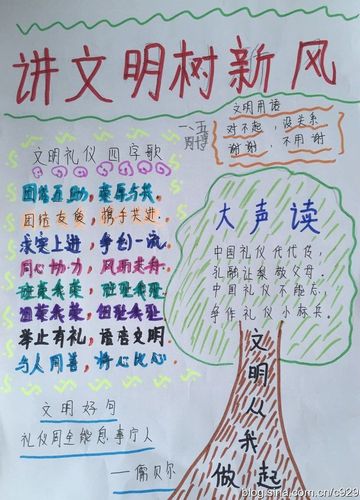 讲文明树新风
文明用语
对不起，没关系
谢谢，不用谢
文明礼仪四字歌
团结互助，荣辱与共
团结友爱，携手共进
求实上进，争创一流
同心协力，风雨同舟
班荣我荣，班耻我耻
举止有礼，语言文明
与人同善，将心比心
大声读
中国礼仪代代传，
孔融让梨敬父母。
中国礼仪不能忘，
争作礼仪小标兵。
文明从我做起
文明好句
礼仪周全能息事宁人
——儒贝尔
blog.sina.com.cn/c929